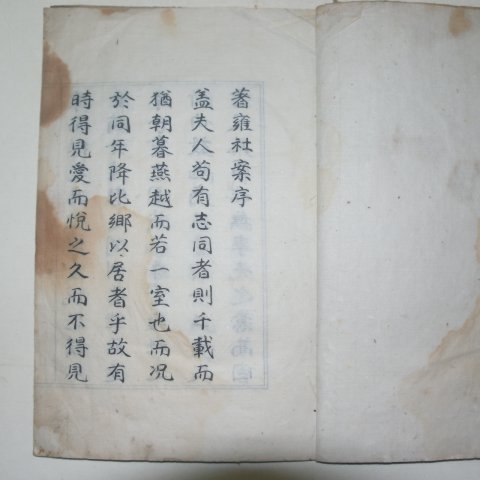 著雍社案序
盖夫人苟有志同者則千載而
猶朝暮燕越而若一室也而况
於同年降比鄉以居者乎故有
時得見愛而悅之久而不得見